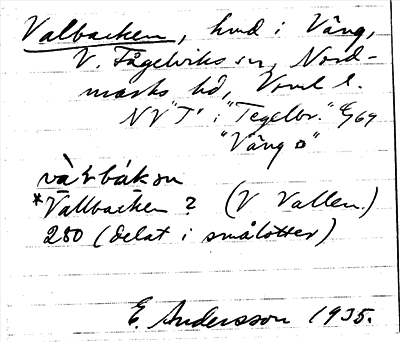 Valbacken, hmd i Vång,
V. Fågelviks sn, Nord-
marks hd, Vrml l.
NV "T" i "Tegelbr." E/69
"Vång o"
*Vallbacken? (V Vallen.)
280 (delat i smålotter)
E. Andersson 1935.